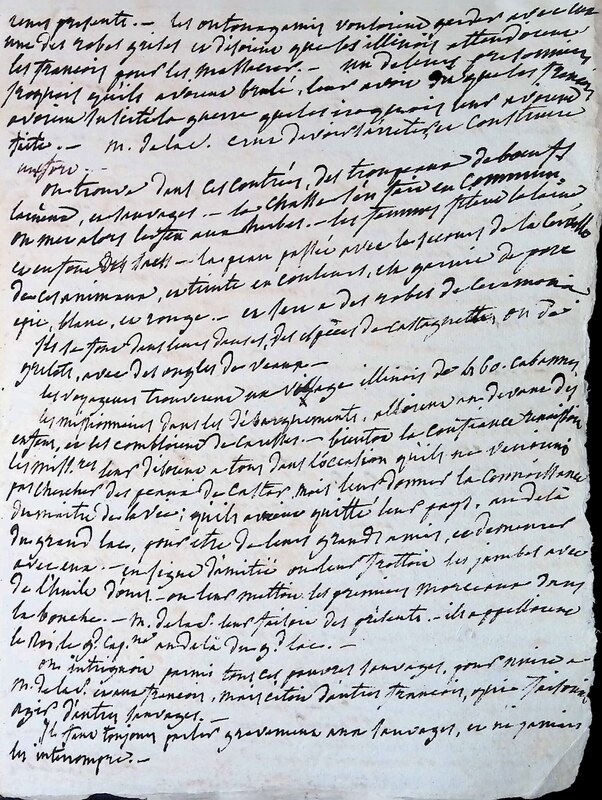 rens présents. — les outouagamis vouloient garder avec eux
une des robes grises et disoient que les illinois attendoient
les francois pour les massacrer. — un de leurs prisonniers
iroquois qu'ils avoient brulé, leur avoit dit que les francois
avoient suscité la guerre que les iroquois leur avoient
faite. — m. de la s. crut devoir s'arreter et construire
un fort. —
on trouve dans ces contrés, des troupeaux de bœufs
laineux, et sauvages. — la chasse s'en fait en commun
on met alors le feu aux herbes. — les femmes filent la laine
et en font des sacs. — la peau passée avec le secours de la cervelle
de ces animaux, est teinte en couleurs, et garnie de porc
epic, blanc, et rouge. — et sert a des robes de ceremonie
ils se font dans leurs danses, des espèces de castagnettes, ou de
grelots, avec des ongles de veaux. —
les voyageurs trouverent un village illinois de 460. cabannes
les missionnaires dans les débarquements, alloient au devant des
enfans, et les combloient de caresses. — bientot la confiance renaissoit
les missres leur disoient a tous dans l'occasion qu'ils ne venoient
pas chercher des peaux de castor, mais leur donner la connoissance
du maitre de la vie; qu'ils avoient quitté leur pays, au dela
du grand lac, pour etre de leurs grands amis, et demeurer
avec eux. — en signe d'amitié on leur frottoit les jambes avec
de l'huile d'ours. — on leur mettoit les premiers morceaux dans
la bouche. — m. de la s. leur faisoit des présents. — ils appelloient
le Roi le gd. cap.ne au dela du gd. lac. —
on intriguoit parmi tous ces pauvres sauvages, pour nuire a
m. de la s. et aux francois, mais c'etoit d'autres francois, qui faisoient
agir d'autres sauvages. —
il faut toujours parler gravement aux sauvages, et ne jamais
les interrompre. —